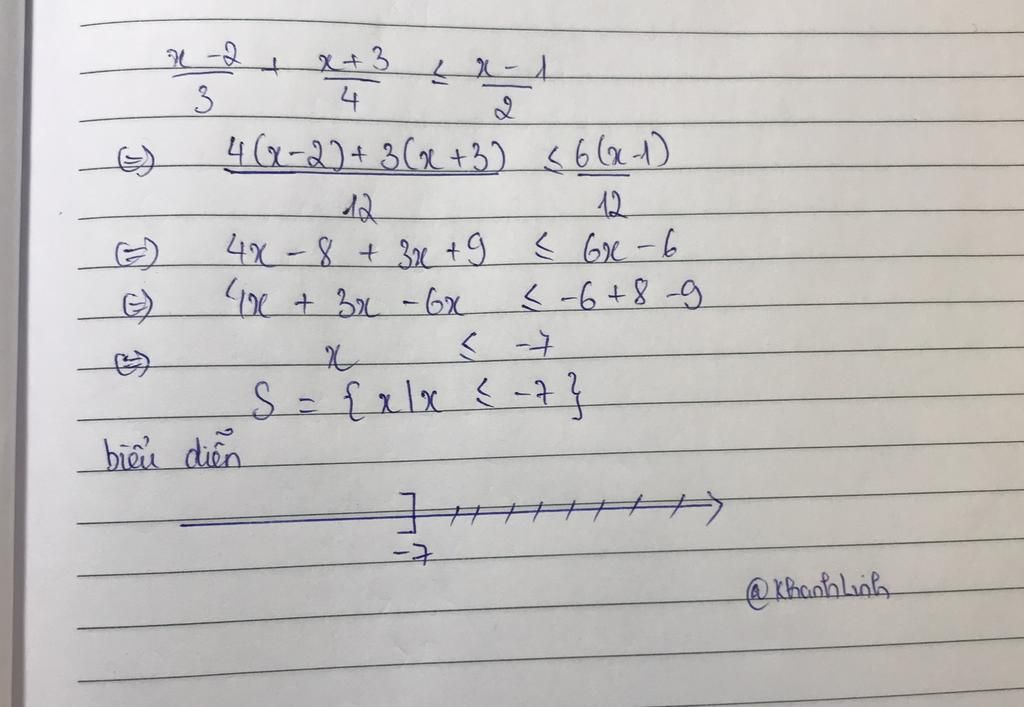 x - 2 / 3 + x + 3 / 4 ≤ x - 1 / 2
(=) 4(x-2) + 3(x+3) / 12 ≤ 6(x-1) / 12
(=) 4x - 8 + 3x + 9 ≤ 6x - 6
(=) 4x + 3x - 6x ≤ -6 + 8 - 9
(=) x ≤ -7
S = { x | x ≤ -7 }
biểu diễn
-7
@KhanhLinh